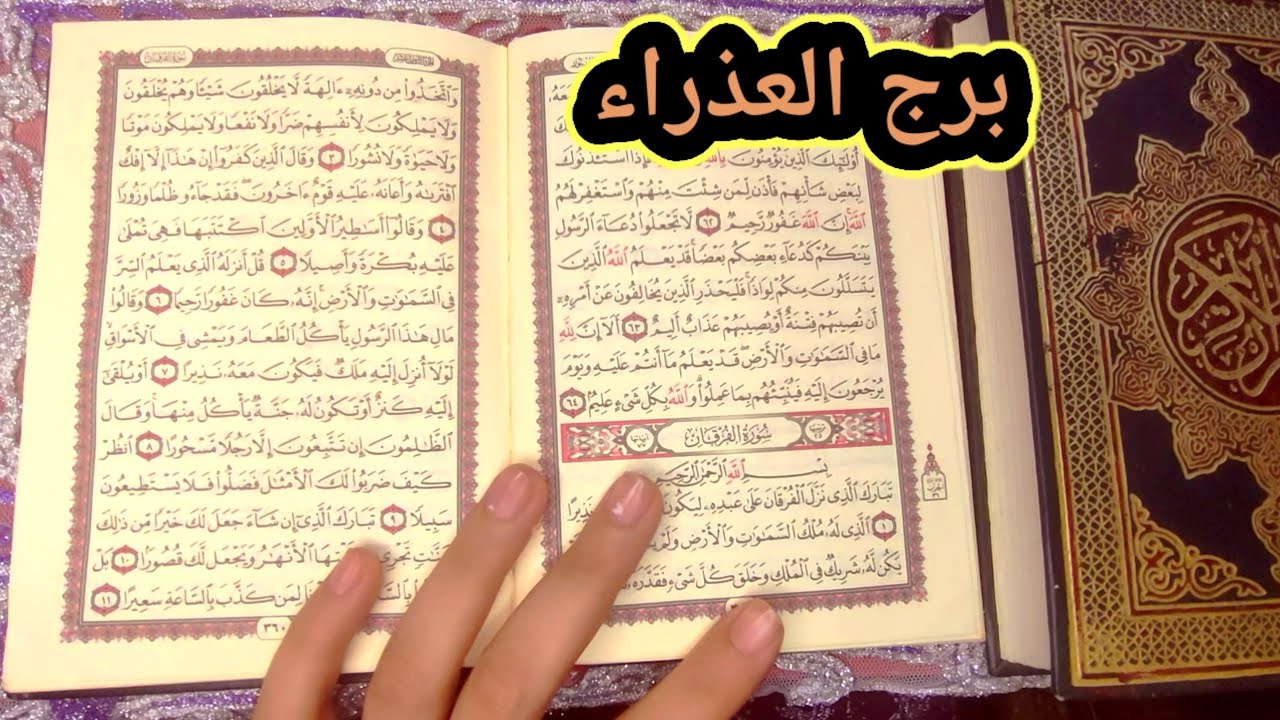 برج العذراء
أُوْلَٰٓئِكَ ٱلَّذِينَ يُؤْمِنُونَ بِٱللَّهِ فَإِذَا ٱسْتَـْٔذَنُوكَ
لِبَعْضِ شَأْنِهِمْ فَأْذَن لِّمَن شِئْتَ مِنْهُمْ وَٱسْتَغْفِرْ لَهُمُ
ٱللَّهَ إِنَّ ٱللَّهَ غَفُورٌ رَّحِيمٌ ٦٢ لَّا تَجْعَلُوا۟ دُعَآءَ ٱلرَّسُولِ
بَيْنَكُمْ كَدُعَآءِ بَعْضِكُم بَعْضًا قَدْ يَعْلَمُ ٱللَّهُ ٱلَّذِينَ
يَتَسَلَّلُونَ مِنكُمْ لِوَاذًا فَلْيَحْذَرِ ٱلَّذِينَ يُخَالِفُونَ عَنْ أَمْرِهِۦٓ
أَن تُصِيبَهُمْ فِتْنَةٌ أَوْ يُصِيبَهُمْ عَذَابٌ أَلِيمٌ ٦٣ أَلَآ إِنَّ لِلَّهِ
مَا فِى ٱلسَّمَٰوَٰتِ وَٱلْأَرْضِ قَدْ يَعْلَمُ مَآ أَنتُمْ عَلَيْهِ وَيَوْمَ
يُرْجَعُونَ إِلَيْهِ فَيُنَبِّئُهُم بِمَا عَمِلُوا۟ وَٱللَّهُ بِكُلِّ شَىْءٍ عَلِيمٌ ٦٤
سُورَةُ الفُرْقَانِ
بِسْمِ ٱللَّهِ ٱلرَّحْمَٰنِ ٱلرَّحِيمِ
تَبَارَكَ ٱلَّذِى نَزَّلَ ٱلْفُرْقَانَ عَلَىٰ عَبْدِهِۦ لِيَكُونَ نَذِيرًا
١ ٱلَّذِى لَهُۥ مُلْكُ ٱلسَّمَٰوَٰتِ وَٱلْأَرْضِ وَلَمْ
يَكُن لَّهُۥ شَرِيكٌ فِى ٱلْمُلْكِ وَخَلَقَ كُلَّ شَىْءٍ فَقَدَّرَهُۥ
سُورَةُ الفُرْقَانِ
وَٱتَّخَذُوا۟ مِن دُونِهِۦٓ ءَالِهَةً لَّا يَخْلُقُونَ شَيْـًٔا وَهُمْ يُخْلَقُونَ
وَلَا يَمْلِكُونَ لِأَنفُسِهِمْ ضَرًّا وَلَا نَفْعًا وَلَا يَمْلِكُونَ مَوْتًا
وَلَا حَيَوٰةً وَلَا نُشُورًا ٣ وَقَالَ ٱلَّذِينَ كَفَرُوٓا۟ إِنْ هَٰذَآ إِلَّآ إِفْكٌ
ٱفْتَرَىٰهُ وَأَعَانَهُۥ عَلَيْهِ قَوْمٌ ءَاخَرُونَ فَقَدْ جَآءُو ظُلْمًا وَزُورًا
٤ وَقَالُوٓا۟ أَسَٰطِيرُ ٱلْأَوَّلِينَ ٱكْتَتَبَهَا فَهِىَ تُمْلَىٰ
عَلَيْهِ بُكْرَةً وَأَصِيلًا ٥ قُلْ أَنزَلَهُ ٱلَّذِى يَعْلَمُ ٱلسِّرَّ
فِى ٱلسَّمَٰوَٰتِ وَٱلْأَرْضِ إِنَّهُۥ كَانَ غَفُورًا رَّحِيمًا ٦ وَقَالُوا۟
مَالِ هَٰذَا ٱلرَّسُولِ يَأْكُلُ ٱلطَّعَامَ وَيَمْشِى فِى ٱلْأَسْوَاقِ
لَوْلَآ أُنزِلَ إِلَيْهِ مَلَكٌ فَيَكُونَ مَعَهُۥ نَذِيرًا ٧ أَوْ يُلْقَىٰٓ
إِلَيْهِ كَنزٌ أَوْ تَكُونُ لَهُۥ جَنَّةٌ يَأْكُلُ مِنْهَا وَقَالَ
ٱلظَّٰلِمُونَ إِن تَتَّبِعُونَ إِلَّا رَجُلًا مَّسْحُورًا ٨ ٱنظُرْ
كَيْفَ ضَرَبُوا۟ لَكَ ٱلْأَمْثَٰلَ فَضَلُّوا۟ فَلَا يَسْتَطِيعُونَ
سَبِيلًا ٩ تَبَارَكَ ٱلَّذِىٓ إِن شَآءَ جَعَلَ لَكَ خَيْرًا مِّن ذَٰلِكَ
جَنَّٰتٍ تَجْرِى ٱلْأَنْهَٰرُ وَيَجْعَل لَّكَ قُصُورًا ١٠ بَلْ
لِمَن كَذَّبَ بِٱلسَّاعَةِ سَعِيرًا ١١
٣٦٠